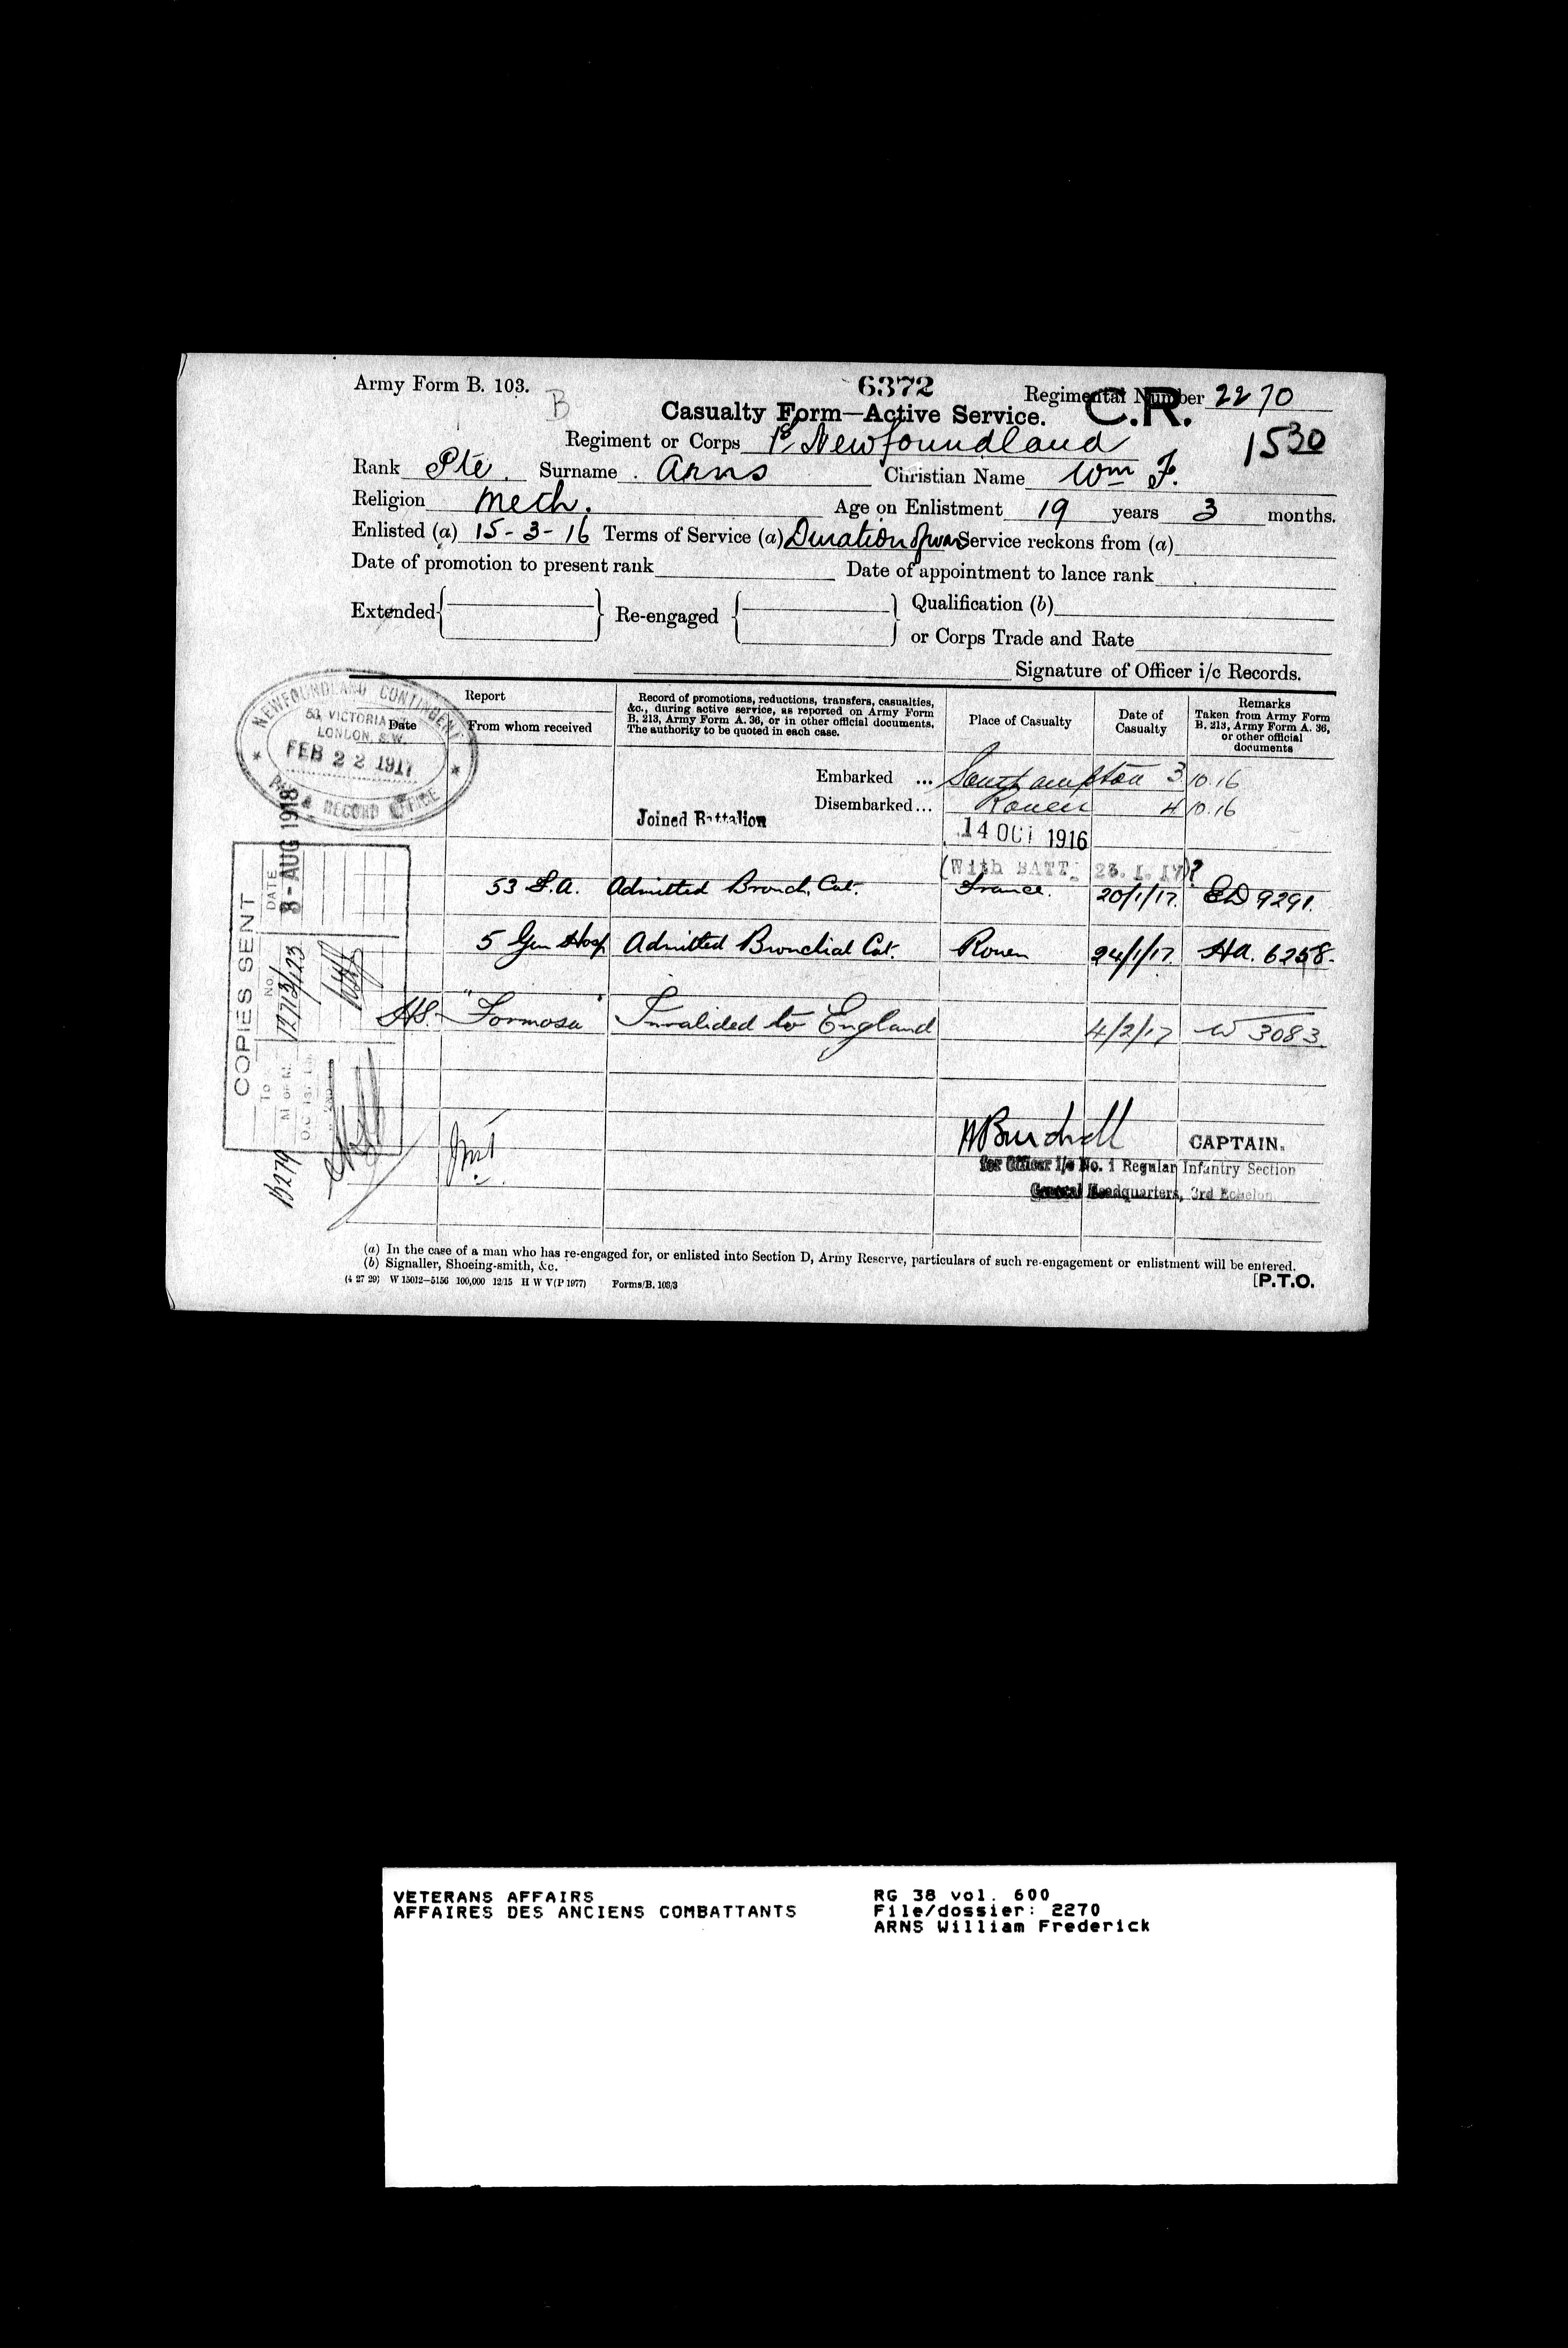 Army Form B. 103.
B
6372
Regimental Number 2270
C.R.
Casualty Form—Active Service.
1530
Regiment or Corps 1st Newfoundland
Rank Pte. Surname Arns Christian Name Wm F.
Religion Meth. Age on Enlistment 19 years 3 months.
Enlisted (a) 15-3-16 Terms of Service (a) Duration of war Service reckons from (a)
Date of promotion to present rank Date of appointment to lance rank
Extended Re-engaged Qualification (b)
or Corps Trade and Rate
Signature of Officer i/c Records.
NEWFOUNDLAND CONTINGENT
53, VICTORIA
LONDON, S.W.
FEB 22 1917
PAY & RECORD OFFICE
Report
Date
From whom received
Record of promotions, reductions, transfers, casualties,
&c., during active service, as reported on Army Form
B. 213, Army Form A. 36, or in other official documents.
The authority to be quoted in each case.
Place of Casualty
Date of
Casualty
Remarks
Taken from Army Form
B. 213, Army Form A. 36,
or other official
documents
Embarked ... Southampton 3.10.16
Disembarked... Rouen 4.10.16
Joined Battalion 14 OCT 1916
(With BATT. 23.1.17)?
53 F.A. Admitted Bronch. Cat. France. 20/1/17. ED 9291.
5 Gen Hosp Admitted Bronchial Cat. Rouen 24/1/17. HA. 6258.
HS. "Formosa" Invalided to England 4/2/17 W 3083.
COPIES SENT
DATE
8 - AUG 1918
No.
TO
M OF M.
CAPTAIN.
for Officer i/c No. 1 Regular Infantry Section
General Headquarters, 3rd Echelon
(a) In the case of a man who has re-engaged for, or enlisted into Section D, Army Reserve, particulars of such re-engagement or enlistment will be entered.
(b) Signaller, Shoeing-smith, &c.
(4 27 29) W 15012—5156 100,000 12/15 H W V(P 1977) Forms/B. 103/3
[P.T.O.
VETERANS AFFAIRS
AFFAIRES DES ANCIENS COMBATTANTS
RG 38 vol. 600
File/dossier: 2270
ARNS William Frederick